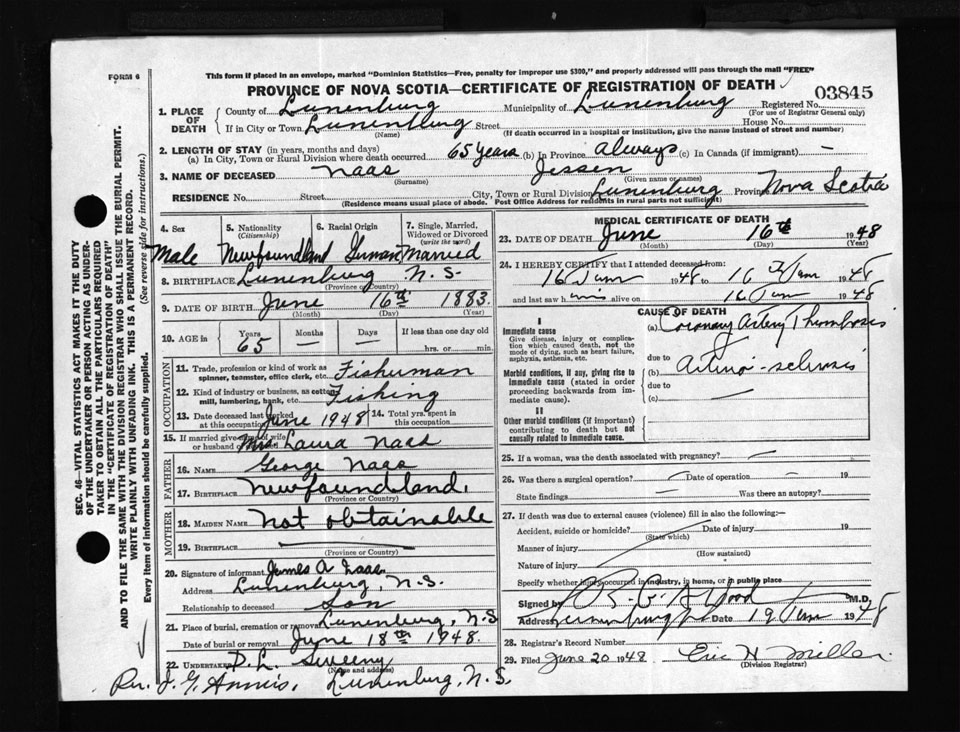 FORM 6
This form if placed in an envelope, marked "Dominion Statistics—Free, penalty for improper use $300," and properly addressed will pass through the mail "FREE"
PROVINCE OF NOVA SCOTIA—CERTIFICATE OF REGISTRATION OF DEATH
03845
1. PLACE OF DEATH
County of Lunenburg Municipality of Lunenburg Registered No.
(For use of Registrar General only)
If in City or Town Lunenburg Street House No.
(Name) (If death occurred in a hospital or institution, give the name instead of street and number)
2. LENGTH OF STAY (in years, months and days)
(a) In City, Town or Rural Division where death occurred 65 years (b) In Province always (c) In Canada (if immigrant) —
3. NAME OF DECEASED Naas Jessen
(Surname) (Given name or names)
RESIDENCE No. Street City, Town or Rural Division Lunenburg Province Nova Scotia
(Residence means usual place of abode. Post Office Address for residents in rural parts not sufficient)
4. Sex 5. Nationality (Citizenship) 6. Racial Origin 7. Single, Married, Widowed or Divorced (write the word)
Male Newfoundland German Married
8. BIRTHPLACE Lunenburg N.S.
(Province or Country)
9. DATE OF BIRTH June 16th 1883
(Month) (Day) (Year)
10. AGE in Years Months Days If less than one day old
65 — — hrs. or min.
OCCUPATION
11. Trade, profession or kind of work as spinner, teamster, office clerk, etc. Fisherman
12. Kind of industry or business, as cotton mill, lumbering, bank, etc. Fishing
13. Date deceased last worked at this occupation June 1948 14. Total yrs. spent in this occupation
15. If married give name of wife or husband of Mrs Laura Naas
FATHER
16. NAME George Naas
17. BIRTHPLACE Newfoundland.
(Province or Country)
MOTHER
18. MAIDEN NAME Not obtainable
19. BIRTHPLACE
(Province or Country)
20. Signature of informant James A Naas
Address Lunenburg, N.S.
Relationship to deceased Son
21. Place of burial, cremation or removal Lunenburg, N.S
Date of burial or removal June 18th 1948.
22. UNDERTAKER D. L. Sweeny
(Name and address)
Per. J. G. Lunenburg, N.S.
MEDICAL CERTIFICATE OF DEATH
23. DATE OF DEATH June 16th 1948
(Month) (Day) (Year)
24. I HEREBY CERTIFY that I attended deceased from:
16 1948 to 16 1948
and last saw him alive on 16 1948
CAUSE OF DEATH
I
Immediate cause (a) Coronary Artery Thrombosis
Give disease, injury or complication which caused death, not the mode of dying, such as heart failure, asphyxia, asthenia, etc.
due to
Morbid conditions, if any, giving rise to immediate cause (stated in order proceeding backwards from immediate cause).
(b) Arterio-sclerosis
due to
(c)
II
Other morbid conditions (if important) contributing to death but not causally related to immediate cause.
25. If a woman, was the death associated with pregnancy? —
26. Was there a surgical operation? — Date of operation — 19
State findings — Was there an autopsy?
27. If death was due to external causes (violence) fill in also the following:—
Accident, suicide or homicide? Date of injury 19
(State which)
Manner of injury
(How sustained)
Nature of injury
Specify whether injury occurred in industry, in home, or in public place
Signed by Wood M.D.
Address Date 19 1948
28. Registrar's Record Number
29. Filed June 20 1948 Eric H Miller.
(Division Registrar)
SEC. 46—VITAL STATISTICS ACT MAKES IT THE DUTY
OF THE UNDERTAKER OR PERSON ACTING AS UNDER-
TAKER TO OBTAIN ALL THE PARTICULARS REQUIRED
IN THE "CERTIFICATE OF REGISTRATION OF DEATH"
AND TO FILE THE SAME WITH THE DIVISION REGISTRAR WHO SHALL ISSUE THE BURIAL PERMIT.
WRITE PLAINLY WITH UNFADING INK. THIS IS A PERMANENT RECORD.
Every item of information should be carefully supplied. (See reverse side for instructions.)